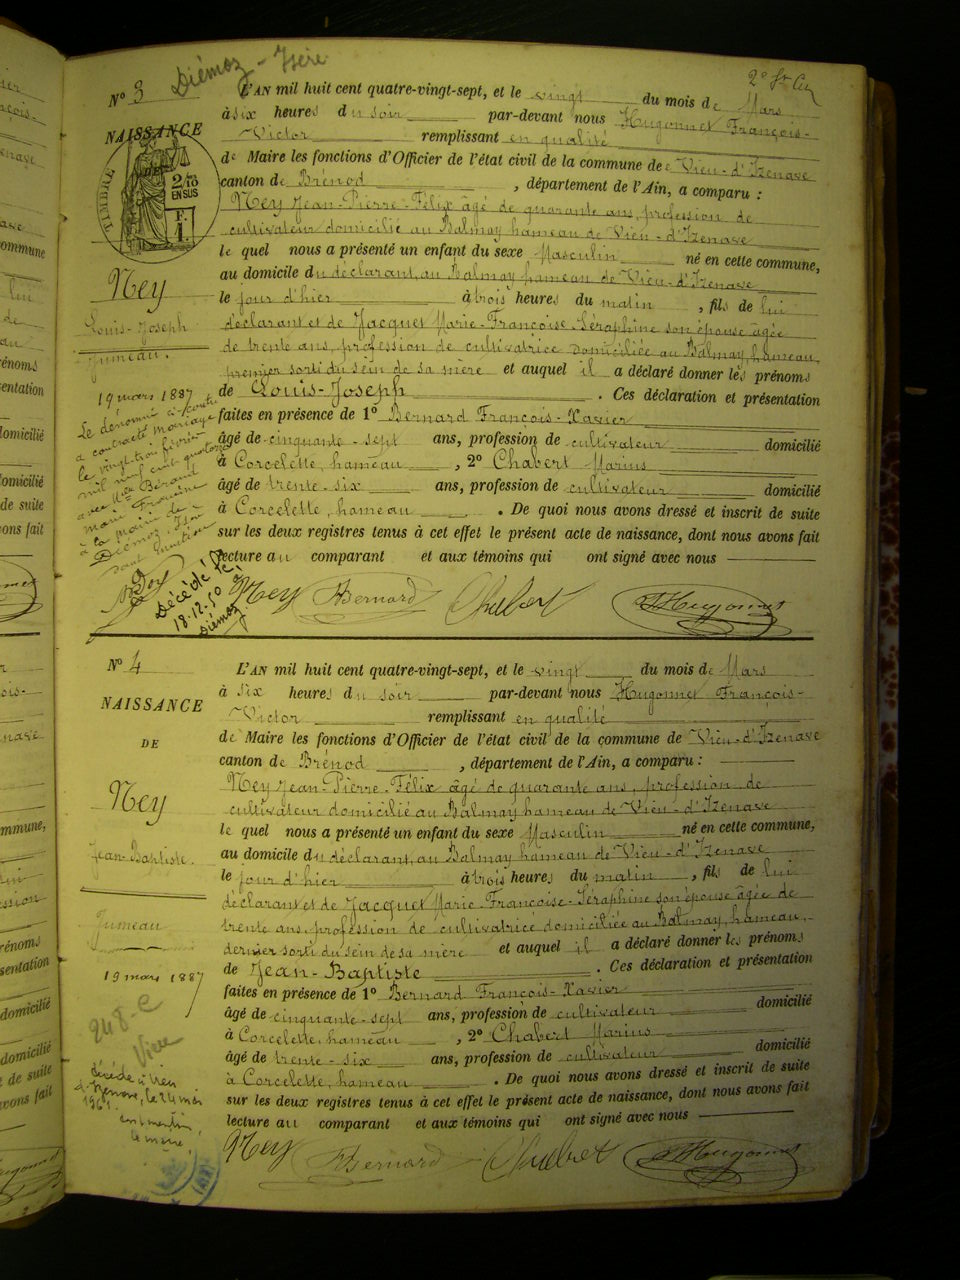 Diémoz - Isère
N° 3
NAISSANCE
TIMBRE
2/10
EN SUS
F.
1
Ney
Louis-Joseph
Jumeau.
19 mars 1887
Le dénommé ci-contre
a contracté mariage
le vingt-trois février
mil neuf cent quatorze
avec
Marie Françoise
à la mairie de
Diémoz, Isère
Décédé le
18.12.50
Diémoz
L'AN mil huit cent quatre-vingt-sept, et le vingt du mois de Mars
à six heures du soir par-devant nous Hugonnet François-
Victor remplissant en qualité
de Maire les fonctions d'Officier de l'état civil de la commune de Vieu-d'Izenave
canton de Brénod, département de l'Ain, a comparu :
Ney Jean-Pierre-Félix âgé de quarante ans, profession de
cultivateur domicilié au Balmay hameau de Vieu-d'Izenave
le quel nous a présenté un enfant du sexe Masculin né en cette commune,
au domicile du déclarant, au Balmay hameau de Vieu-d'Izenave
le jour d'hier à trois heures du matin, fils de lui
déclarant et de Jacquet Marie-Françoise-Séraphine son épouse âgée
de trente ans, profession de cultivatrice domiciliée au Balmay, hameau,
premier sorti du sein de sa mère et auquel il a déclaré donner les prénoms
de Louis-Joseph. Ces déclaration et présentation
faites en présence de 1° Bernard François-Xavier
âgé de cinquante-sept ans, profession de cultivateur domicilié
à Corcelette, hameau, 2° Chabert Marius
âgé de trente-six ans, profession de cultivateur domicilié
à Corcelette, hameau. De quoi nous avons dressé et inscrit de suite
sur les deux registres tenus à cet effet le présent acte de naissance, dont nous avons fait
lecture au comparant et aux témoins qui ont signé avec nous
Ney Bernard Chabert Hugonnet
N° 4
NAISSANCE
DE
Ney
Jean-Baptiste.
Jumeau
19 mars 1887
248-C
Vieu
décédé à Vieu
d'Izenave, le 24 mai
1961.
L'AN mil huit cent quatre-vingt-sept, et le vingt du mois de Mars
à six heures du soir par-devant nous Hugonnet François-
Victor remplissant en qualité
de Maire les fonctions d'Officier de l'état civil de la commune de Vieu-d'Izenave
canton de Brénod, département de l'Ain, a comparu :
Ney Jean-Pierre-Félix âgé de quarante ans, profession de
cultivateur domicilié au Balmay hameau de Vieu-d'Izenave
le quel nous a présenté un enfant du sexe Masculin né en cette commune,
au domicile du déclarant, au Balmay hameau de Vieu-d'Izenave
le jour d'hier à trois heures du matin, fils de lui
déclarant et de Jacquet Marie-Françoise-Séraphine son épouse âgée de
trente ans, profession de cultivatrice domiciliée au Balmay, hameau,
dernier sorti du sein de sa mère et auquel il a déclaré donner les prénoms
de Jean-Baptiste. Ces déclaration et présentation
faites en présence de 1° Bernard François-Xavier
âgé de cinquante-sept ans, profession de cultivateur domicilié
à Corcelette, hameau, 2° Chabert Marius
âgé de trente-six ans, profession de cultivateur domicilié
à Corcelette, hameau. De quoi nous avons dressé et inscrit de suite
sur les deux registres tenus à cet effet le présent acte de naissance, dont nous avons fait
lecture au comparant et aux témoins qui ont signé avec nous
Ney Bernard Chabert Hugonnet